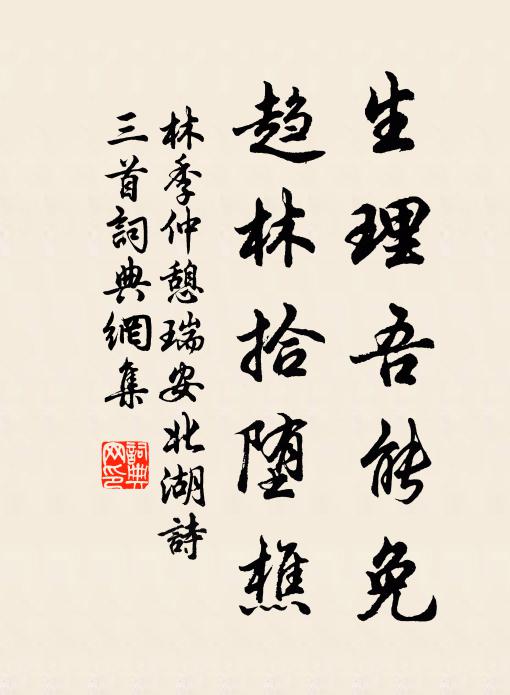 生理吾能免
趋林拾堕樵
林季仲憩瑞安北湖詩
三首詞典網集
詞典
网印